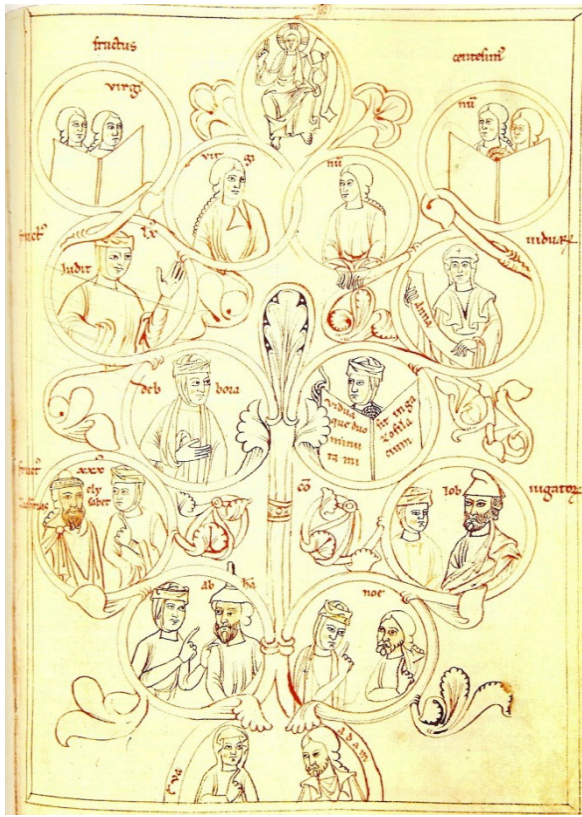 fructus
centesimꝰ
virgi
nū
virgi
nū
fruct
lxꝰ
viduaꝝ
Judit
anna
deb bora
vidua
que duo
minu
ta mi
sit in ga
zofila
cium
fruct
xxxꝰ
ely
sabet
cō
Iob
iugatoꝝ
ab hā
noe
eva
adam